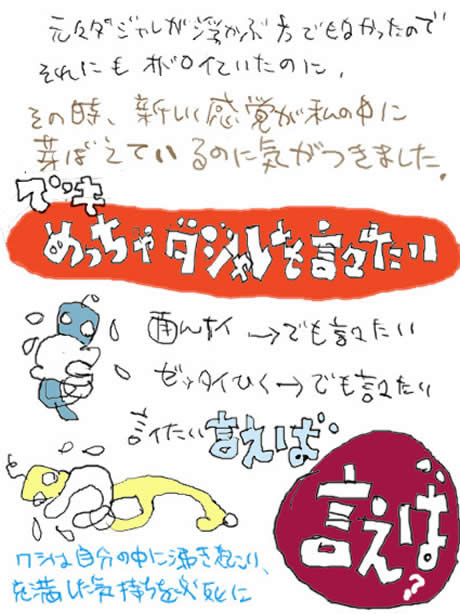 元々ダジャレが浮かぶ方でもなかったので
それにもオドロイていたのに、
その時、新しい感覚が私の中に
芽ばえているのに気がつきました。
ズッキ
めっちゃダジャレを言いたい
→でも言いたい
ゼッタイひく→でも言いたい
言イたい言えば
言えば?
ワシは自分の中に沸き起こり、
充満した気持ちを必死に